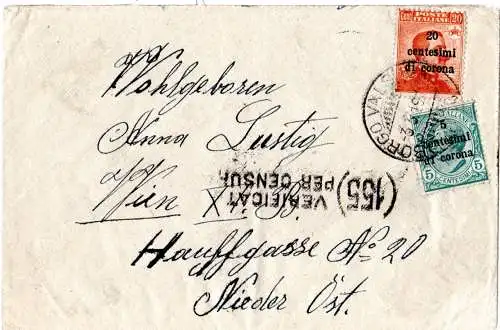 POSTE
ITALIANE
Cent. 20
20
centesimi
di corona
BORGO VALS
5
centesimi
di corona
5 5
CENTESIMI
Wohlgeboren
Anna Lustig
Wien
VERIFICAT
PER CENSUR
(155)
Hauffgasse № 20
Nieder Öst.